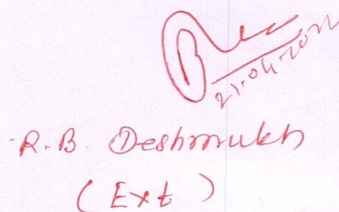 21.04.2022
R.B. Deshmukh
(Ext)